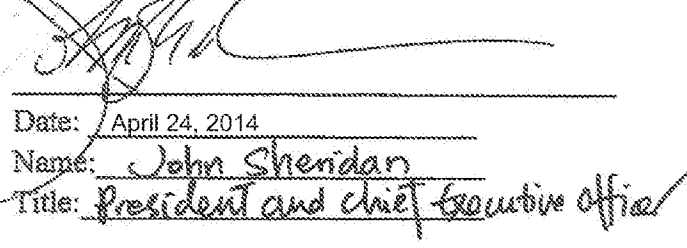 Date: April 24, 2014
Name: John Sheridan
Title: President and Chief Executive Officer